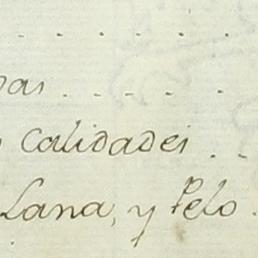 Calidades
Lana, y Pelo.